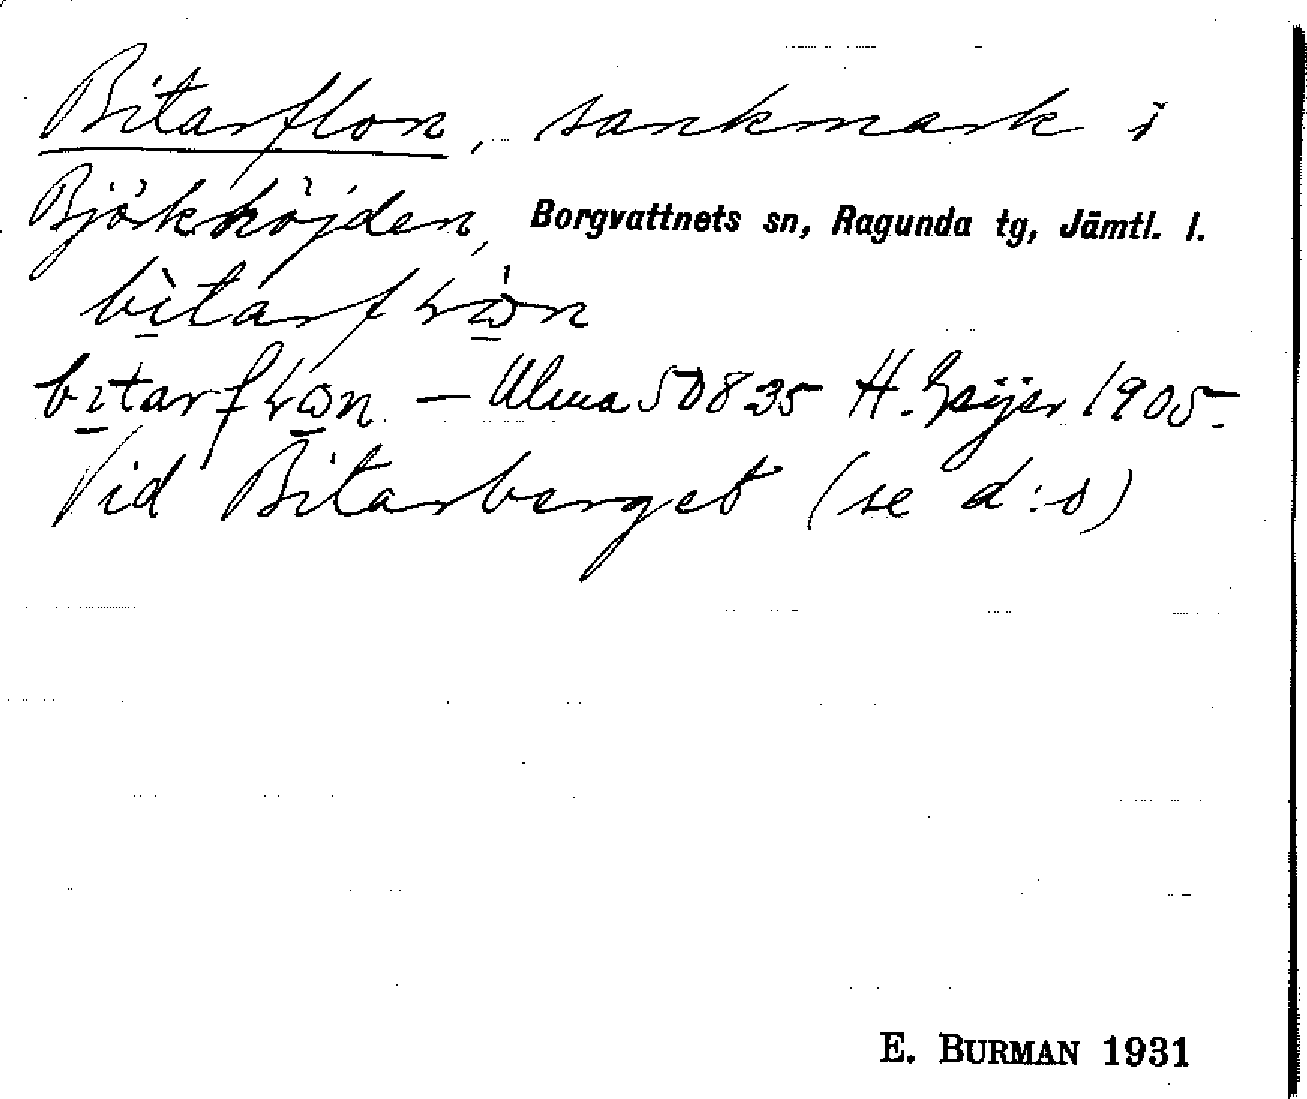 Bitarflon, sankmark i
Björkhöjden, Borgvattnets sn, Ragunda tg, Jämtl. l.
bìtarfꞎɷ̀n
bitarfꞎɷn. – Ulma 50835 H. Geijer 1905.
Vid Bitarberget (se d:o)
E. BURMAN 1931